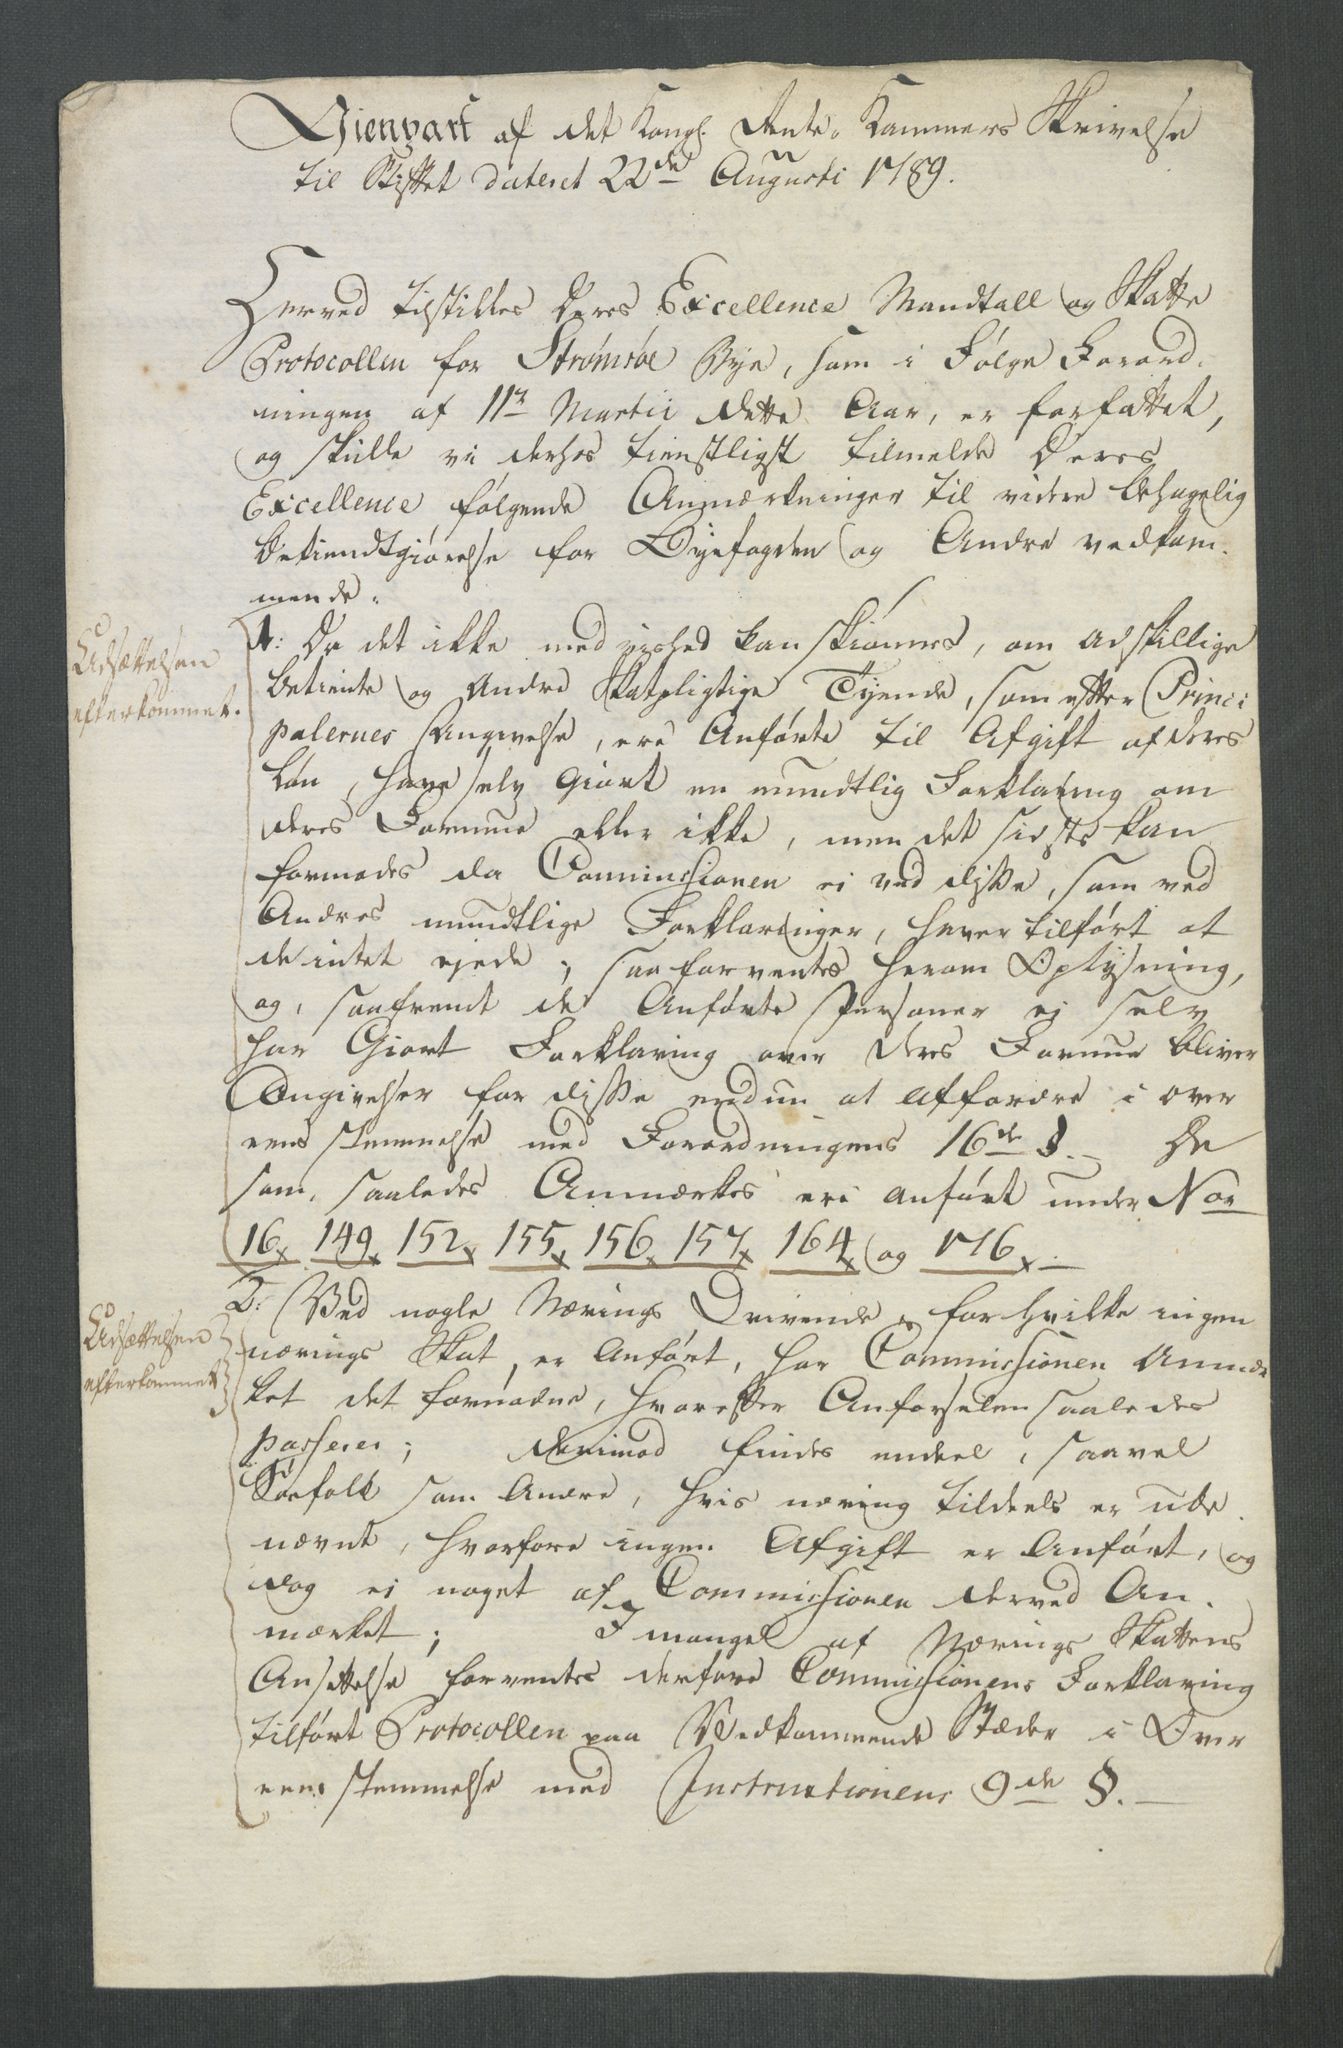 Gienpart af det Kongl. Rente-Kammers Skrivelse
til Stiftet dateret 22de Augusti 1789.
Herved tilstilles Deres Excellence Mandtall og Skatte
Protocollen for Strømsøe Bye, som i Følge Forord-
ningen af 11te Martii dette Aar, er forfattet,
og skulle vi derhos tienstligst tilmelde Deres
Excellence følgende Anmærkninger til videre behagelig
bekiendtgiørelse for Byefogden og Andre vedkom-
mende.
Udsættelsen
efterkommet.
1: Da det ikke med vished kan skiønnes, om adskillige
betiente og Andre Skatpligtige Tyende, som efter Princi
palernes Angivelse, ere Anførte til Afgift af deres
Løn, have selv Giort en mundtlig Forklaring om
deres Formue eller ikke, men det sidste kan
formodes da Commissionen ei ved disse, som ved
Andres mundtlige Forklaringer, haver tilført at
de intet ejede; saa forventes herom Oplysning,
og, saafremt de Anførte Personer ej selv
har Giort Forklaring over deres Formue bliver
Angivelser for disse endnu at affordre i over
eens stemmelse med Forordningens 16de §. De
som saaledes Anmærkes ere anført under Nor
16, 149, 152, 155, 156, 157, 164, og 176.
Udsættelsen
efterkommet
2: Ved nogle Nærings Drivende, for hvilke ingen
nærings Skat er Anført, har Commissionen Anmær
ket det fornødne, hvorefter Anførselen saaledes
passerer; derimod findes endeel, saavel
Søefolk som Andre, hvis næring tildeels er ude
nævnt, hvorfore ingen Afgift er Anført, og
dog ei noget af Commissionen derved An-
mærket; I mangel af Nærings Skattens
Ansettelse forventes derfore Commissionens Forklaring
tilført Protocollen paa Vedkommende Stæder i Over
eens stemmelse med Instructionens 9de §.